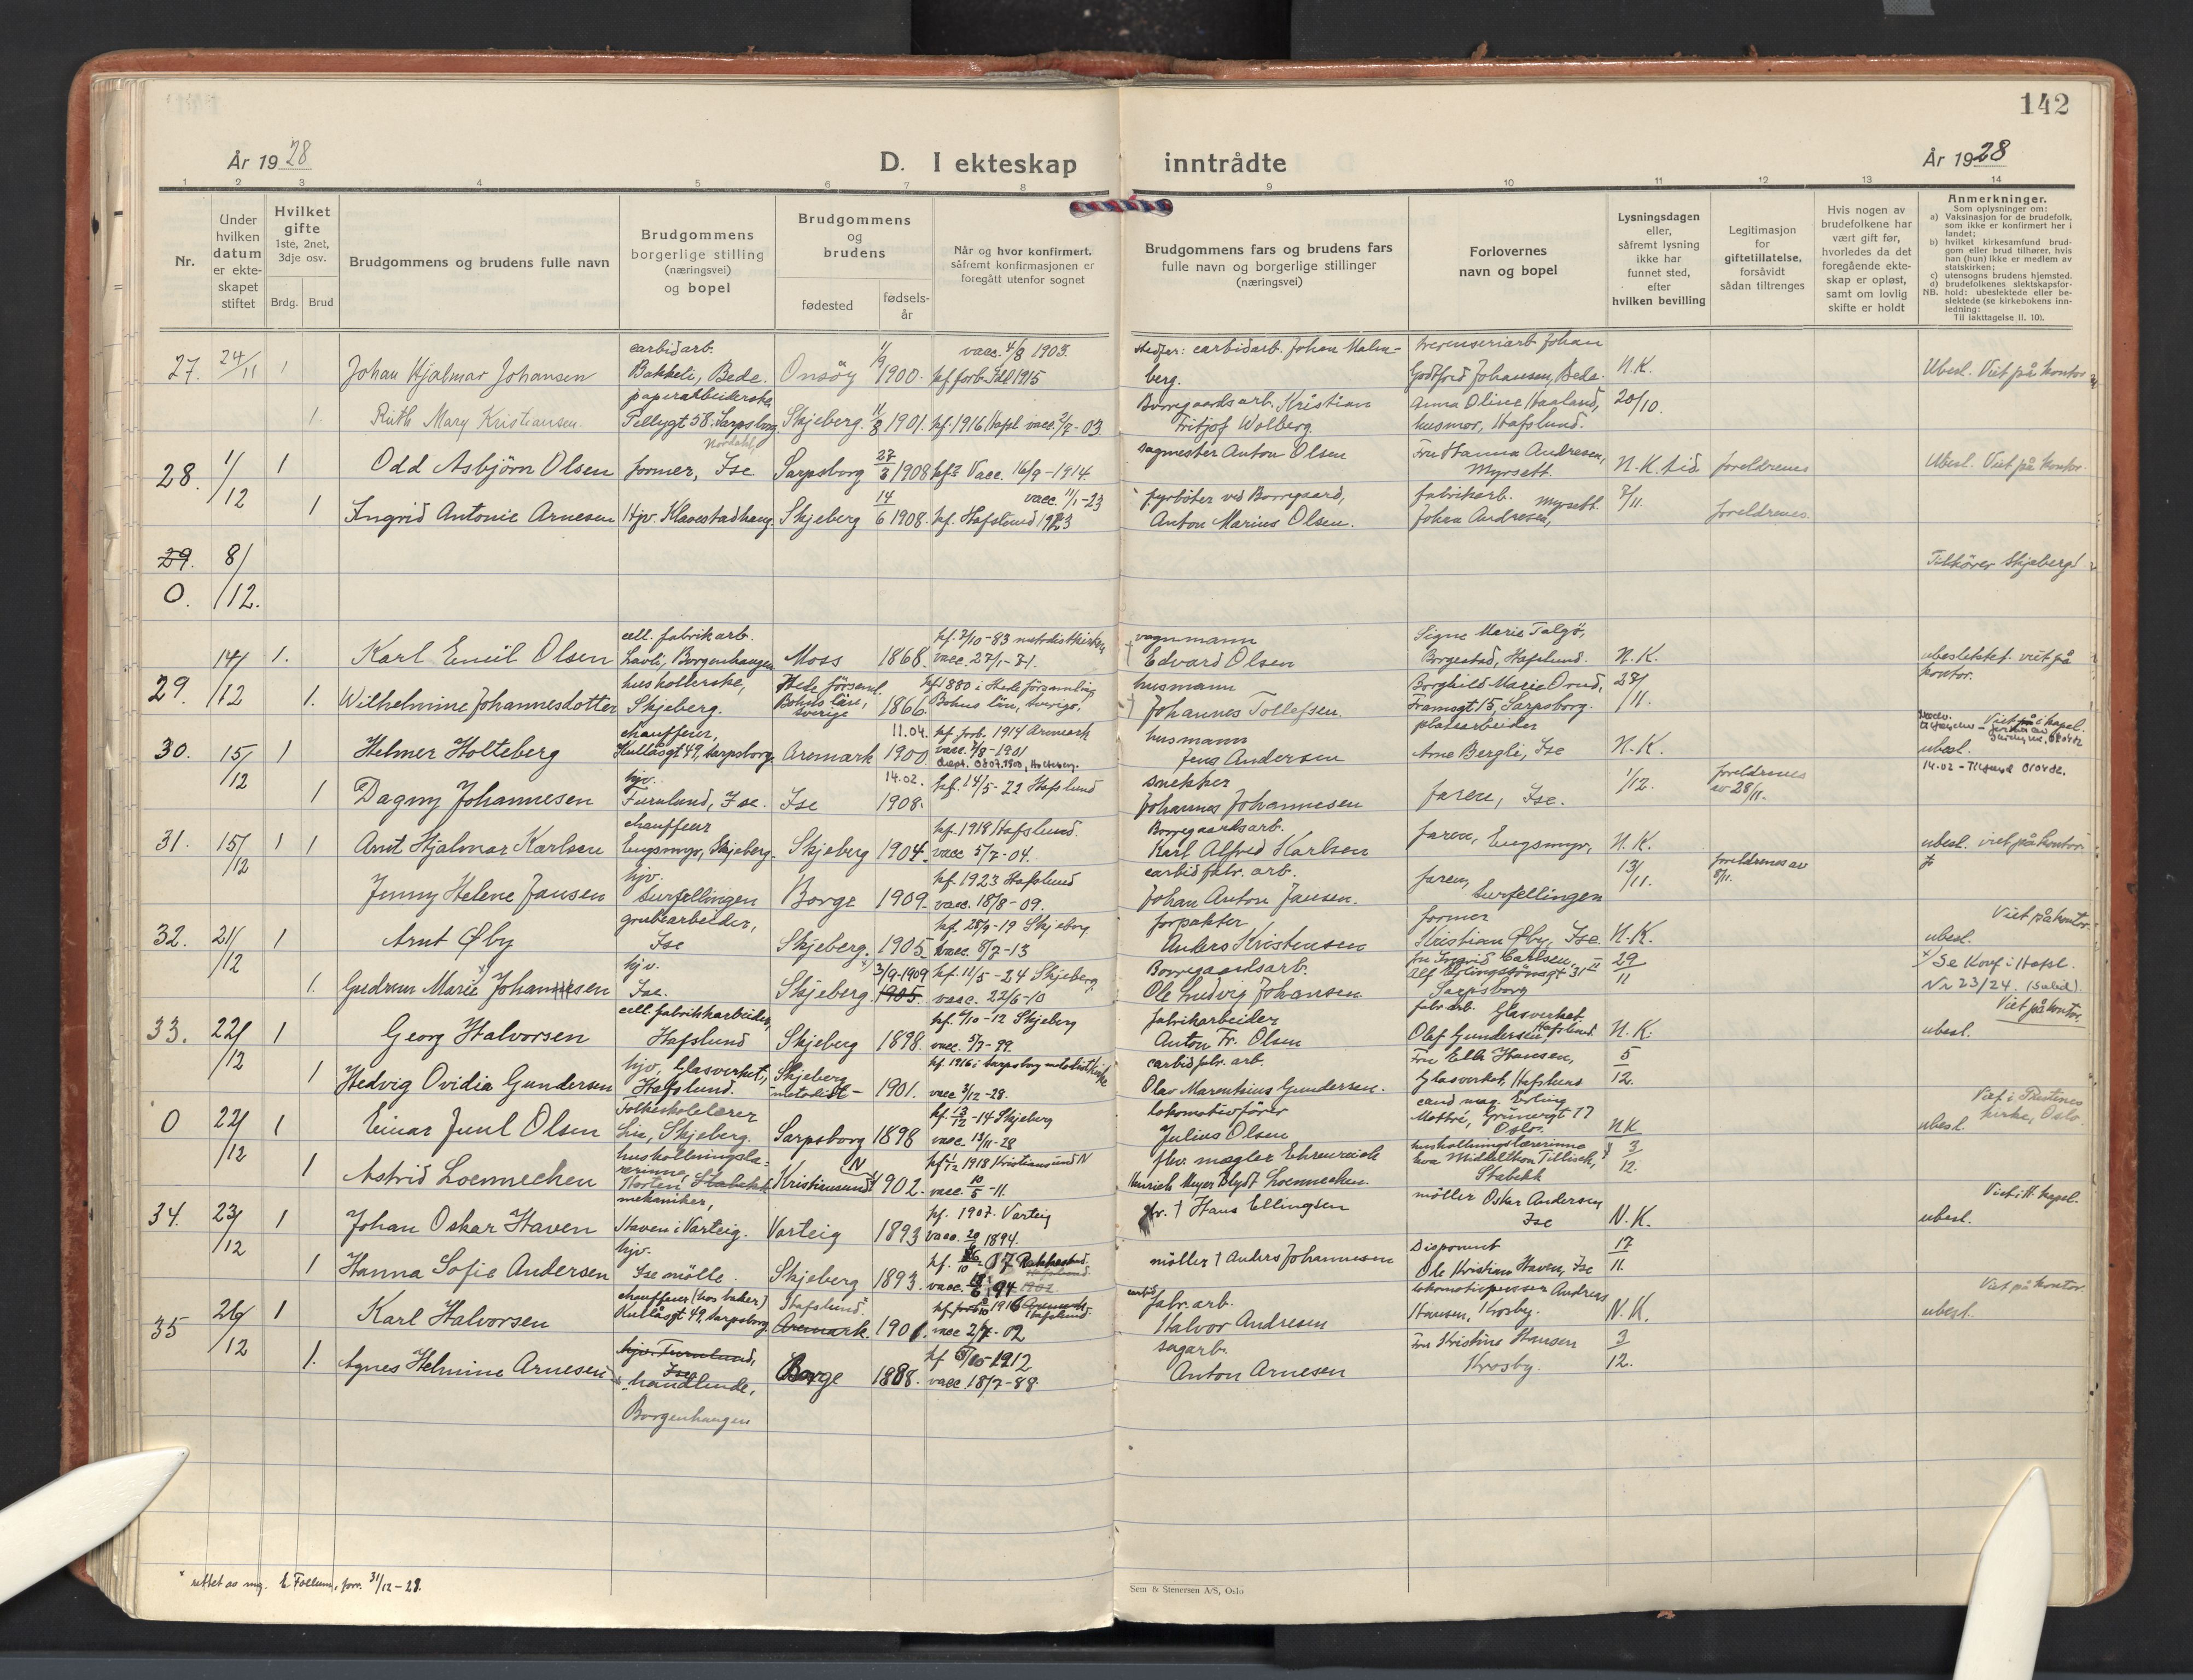 142
År 1928
D. I ekteskap inntrådte
År 1928
1 2 3 4 5 6 7 8 9 10 11 12 13 14
Nr.
Under
hvilken
datum
er ekte-
skapet
stiftet
Hvilket
gifte
1ste, 2net,
3dje osv.
Brdg. Brud
Brudgommens og brudens fulle navn
Brudgommens
borgerlige stilling
(næringsvei)
og bopel
Brudgommens
og
brudens
fødested
fødsels-
år
Når og hvor konfirmert,
såfremt konfirmasjonen er
foregått utenfor sognet
Brudgommens fars og brudens fars
fulle navn og borgerlige stillinger
(næringsvei)
Forlovernes
navn og bopel
Lysningsdagen
eller,
såfremt lysning
ikke har
funnet sted,
efter
hvilken bevilling
Legitimasjon
for
giftetillatelse,
forsåvidt
sådan tiltrenges
Hvis nogen av
brudefolkene har
vært gift før,
hvorledes da det
foregående ekte-
skap er opløst,
samt om lovlig
skifte er holdt
Anmerkninger.
Som oplysninger om:
a) Vaksinasjon for de brudefolk,
som ikke er konfirmert her i
landet;
b) hvilket kirkesamfund brud-
gom eller brud tilhører, hvis
han (hun) ikke er medlem av
statskirken;
c) utensogns brudens hjemsted.
d) brudefolkenes slektskapsfor-
hold: ubeslektede eller be-
slektede (se kirkebokens inn-
ledning:
NB. Til iakttagelse II. 10).
27. 24/11 1 Johan Hjalmar Johansen
carbidarb.
Bakkeli, Bede.
Onsöy 1/9 1900.
vacc. 4/8 1903.
kf. forb. Idd 1915
stedfar: carbidarb. Johan Malm-
berg.
Johan
Godtfred Johansen, Bede.
N.K.
Ubesl. Viet på kontor
1. Ruth Mary Kristiansen
paperarbeiderske
Pellygt 58. Sarpsborg.
Skjeberg. 11/8 1901. kf. 1916 Hafsl vacc. 2/7-03.
Borregaardsarb. Kristian
Fritjof Wolberg.
Anna Oline Haaland,
husmor, Hafslund.
20/10.
28. 1/12 1 Odd Asbjörn Olsen
Nordahl,
former, Ise
Sarpsborg 27/3 1908 kf? Vacc. 16/9-1914.
sagmester Anton Olsen
Fru Hanna Andresen,
Myrsett.
N.K. tid
foreldrenes
Ubesl. Viet på kontor.
1 Ingrid Antonie Arnesen
Hjv. Klavestadhaug.
Skjeberg 14/6 1908.
vacc. 11/1-23
kf. Hafslund 1923
fyrböter ved Borregaard,
Anton Marius Olsen.
fabrikarb.
Johan Andresen, Myrsett.
7/11.
foreldrenes.
29. 8/12.
0.
Tilhörer Skjeberg
29. 14/12 1. Karl Emil Olsen
cell. fabrikarb.
Lavli, Borgenhaugen
Moss 1868.
kf. 7/10-83 metodistkirken
vacc. 27/1-71.
vognmann
† Edvard Olsen
Signe Marie Talgö,
Borgestad, Hafslund.
N.K.
ubeslektet. viet på
kontor.
1. Wilhelmine Johannesdotter
husholderske,
Skjeberg.
Hede församl.
Bohus län,
Sverige
1866.
kf 1880 i Hede församling
Bohus län, Sverige.
husmann
† Johannes Tollefsen.
Borghild Marie Orud,
Framsgt 15, Sarpsborg.
28/11.
30. 15/12 1 Helmer Holteberg
chauffeur,
Kullåsgt 49, Sarpsborg.
Aremark 11.04. 1900.
kf. forb. 1914 Aremark
vacc. 7/8-1901
husmann
Jens Andersen
platearbeider
Arne Bergli, Ise
N.K.
Viet i kapel.
ubesl.
1 Dagny Johannesen
hjv.
Furulund, Ise.
Ise 14.02. 1908.
kf. 14/5-22 Hafslund
snekker
Johannes Johannesen
faren, Ise.
1/12.
foreldrenes
av 28/11.
31. 15/12 1 1 Arnt Hjalmar Karlsen
chauffeur
Engsmyr, Skjeberg.
Skjeberg 1904.
kf. 1918 Hafslund.
vacc 5/7-04.
Borregaardsarb.
Karl Alfred Karlsen
faren, Engsmyr,
N.K.
ubesl. viet på kontor.
Jenny Helene Jansen
hjv.
Surfellingen
Borge 1909.
kf. 1923 Hafslund
vacc. 18/8-09.
carbid fabr. arb.
Johan Anton Jansen.
faren, Surfellingen
13/11.
foreldrenes av
8/11.
32. 21/12 1 Arnt Øby
grubearbeider,
Ise
Skjeberg. 1905
kf. 28/9-19 Skjeberg
vacc. 8/7-13
forpakter
Anders Kristensen
former
Kristian Øby, Ise.
N.K.
Viet på kontor.
ubesl.
1. Gudrun Marie Johannesen
hjv.
Ise.
Skjeberg 3/9-1909
1905.
kf. 11/5-24 Skjeberg.
vacc. 22/6-10
Borregaardsarb.
Ole Ludvig Johansen.
fru Ingrid Carlsen,
Alf Erlingssönsgt 31 II
Sarpsborg
29/11
Se Konf i Hafsl.
Nr 23/24.
33. 22/12 1 Georg Halvorsen
cell. fabrikkarbeider,
Hafslund
Skjeberg 1898.
kf. 6/10-12 Skjeberg
vacc. 5/7-99.
fabrikarbeider
Anton Fr. Olsen
fabr. arb. Glasverket
Olaf Gundersen, Hafslund.
N.K.
Viet på kontor.
ubesl.
1 Hedvig Ovidia Gundersen
hjv, Glasverket,
Hafslund.
Skjeberg
- metodist -
1901.
kf. 1916 i Sarpsborg metodistkirke
vacc 3/12-28.
carbid fabr. arb.
Olav Marentsius Gundersen.
Fru Elli Hansen,
Glasverket, Hafslund
5/12.
0 22/12 1 Einar Juul Olsen
Folkeskolelærer
Lia, Skjeberg.
Sarpsborg 1898
kf. 13/12-14 Skjeberg
vacc. 13/11-28
lokomotivförer
Julius Olsen
cand mag. Erling
Mottré, Grünersgt 17
Oslo.
N.K
Viet i
kirke, Oslo.
ubesl.
1 Astrid Loennechen
husholdningslæ-
rerinne,
Horten Stabekk
Kristiansund N 1902.
kf 1/12 1918 Kristiansund N
vacc. 10/5-11.
fhv. mægler Ehrenreich
Henrich Meyer Blydt Loennechen.
husholdningslærerinne
Middelthon Tillisch,
Stabekk
3/12.
34. 23/12 1 Johan Oskar Haven
mekaniker,
Haven i Varteig.
Varteig 1893
kf. 1907. Varteig
vacc. 1894.
† Hans Ellingsen
möller Oskar Andersen,
Ise
N.K.
Viet i H. kapel.
ubesl.
1 Hanna Sofie Andersen
hjv.
Ise mölle.
Skjeberg 1893.
kf. 07 Rakkestad.
vacc. 94
möller † Anders Johannesen
Disponent
Ole Kristian Haven, Ise
17/11.
35 26/12 1 Karl Halvorsen
chauffeur (hos baker)
Kullåsgt 49, Sarpsborg.
Hafslund
Aremark. 1901.
kf. 1916 Aremark.
Hafslund
vacc 2/7-02
carbid
fabr. arb.
Halvor Andresen
lokomotivpusser Andreas
Hansen, Krosby.
N.K.
Viet på kontor.
ubesl.
1. Agnes Helmine Arnesen
hjv. Furulund,
Ise
handlende,
Borgenhaugen
Borge 1888.
kf 1912
vacc. 18/7-88.
sagarb.
Anton Arnesen
Fru Kristine Hansen
Krosby.
3/12.
* rettet av mig. E. Follum, forr. 31/12-28.
Sem & Stenersen A/S, Oslo